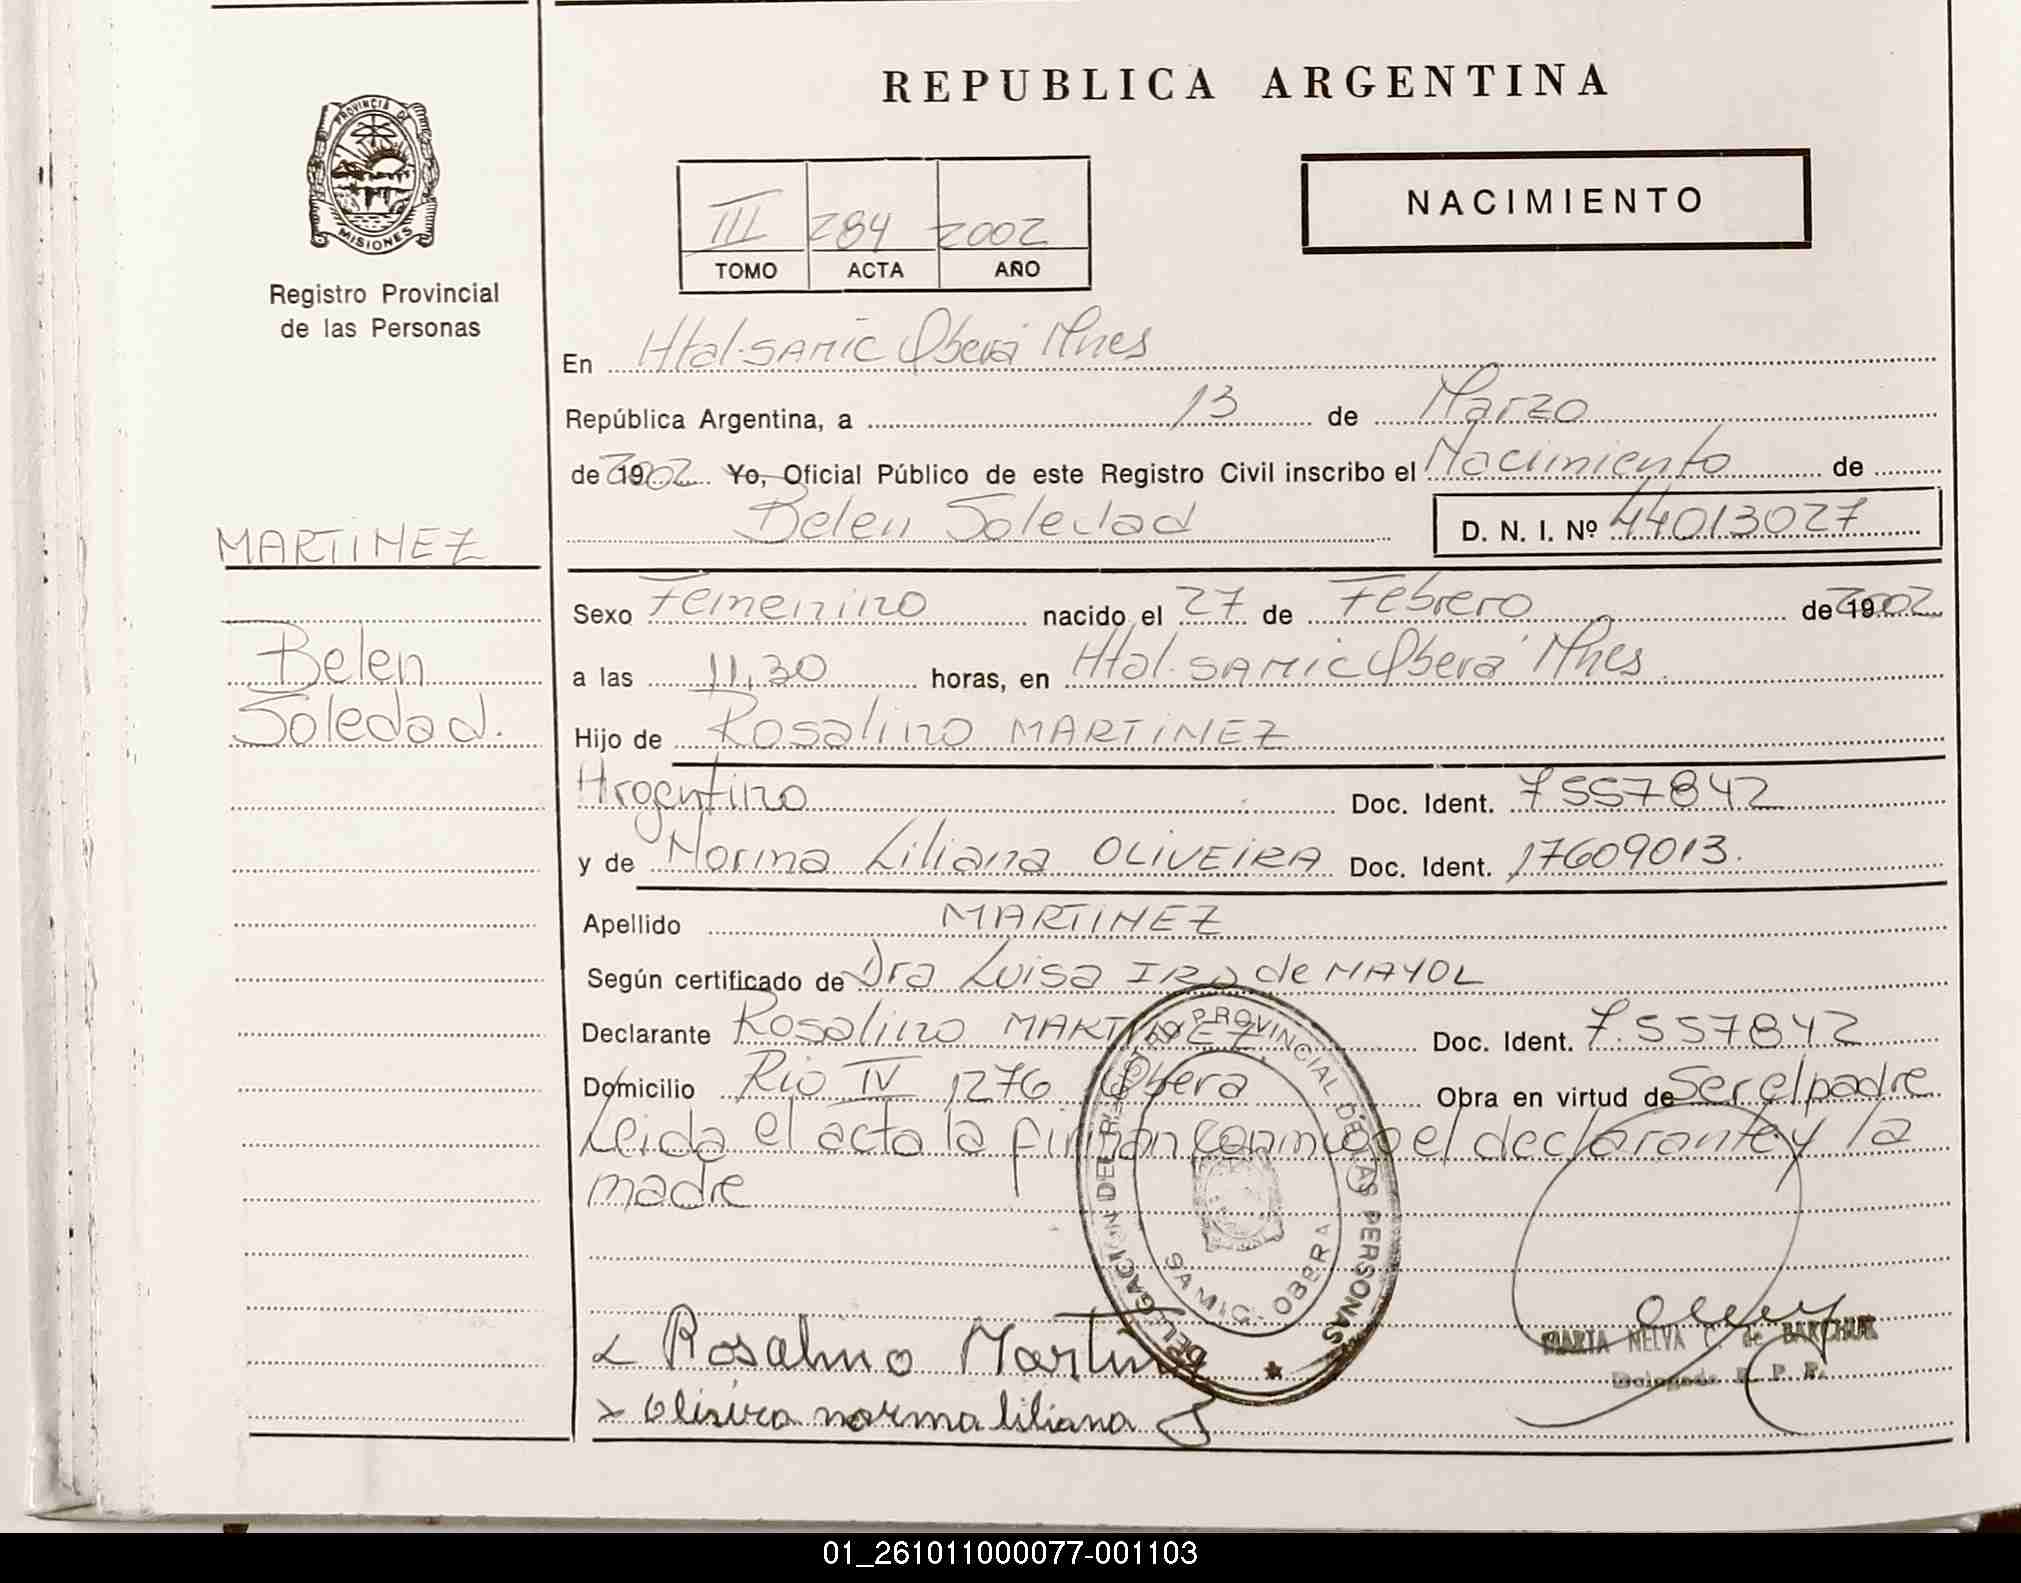 REPUBLICA ARGENTINA
PROVINCIA DE
MISIONES
Registro Provincial
de las Personas
NACIMIENTO
III 284 2002
TOMO ACTA AÑO
En Htal. SAMIC Oberá Mnes
República Argentina, a 13 de Marzo
de 2002 Yo, Oficial Público de este Registro Civil inscribo el Nacimiento de
Belen Soledad D. N. I. Nº 44013027
MARTINEZ
Belen
Soledad.
Sexo Femenino nacido el 27 de Febrero de 2002
a las 11,30 horas, en Htal. SAMIC Oberá Mnes
Hijo de Rosalino MARTINEZ
Argentino Doc. Ident. 7557842
y de Norma Liliana OLIVEIRA Doc. Ident. 17609013.
Apellido MARTINEZ
Según certificado de Dra Luisa de MAYOL
Declarante Rosalino MARTINEZ. Doc. Ident. 7.557842
Domicilio Rio IV 1276 Obera Obra en virtud de Ser el padre
Leida el acta la firman conmigo el declarante y la
madre
DELEGACION DEL REGISTRO PROVINCIAL DE LAS PERSONAS
SAMIC. OBERA
Rosalino Martinez
Oliveira norma liliana
MARTA NELVA C. de BARCHUK
Delegada R. P. P.
01_261011000077-001103